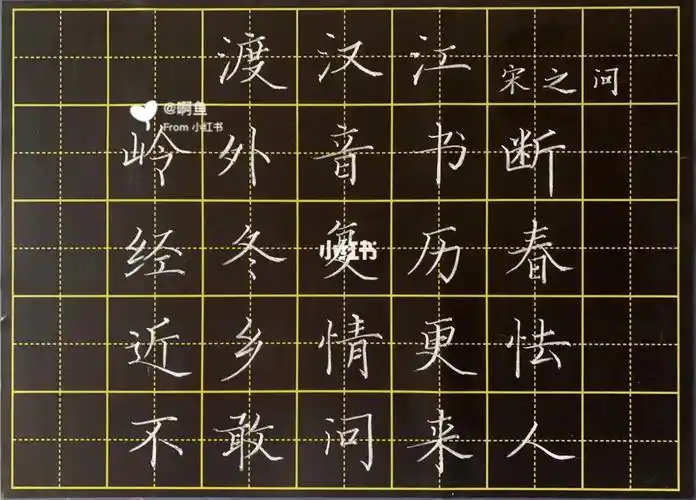 渡汉江 宋之问
@啊鱼
From 小红书
岭外音书断
经冬复历春
小红书
近乡情更怯
不敢问来人